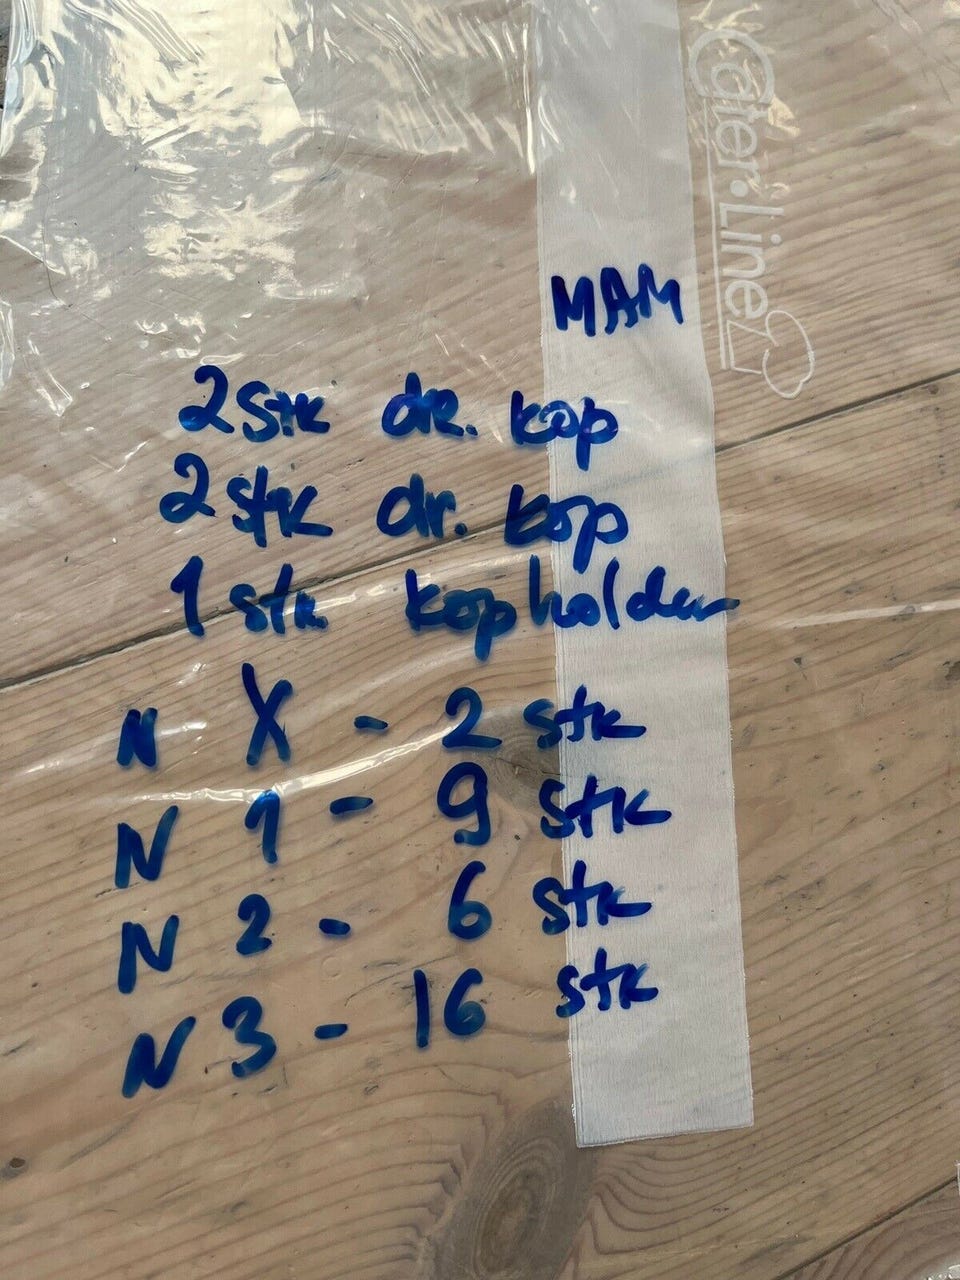 Cater-Line
MAM
2 stk dr. kop
2 stk dr. kop
1 stk kopholder
N X - 2 stk
N 1 - 9 stk
N 2 - 6 stk
N 3 - 16 stk